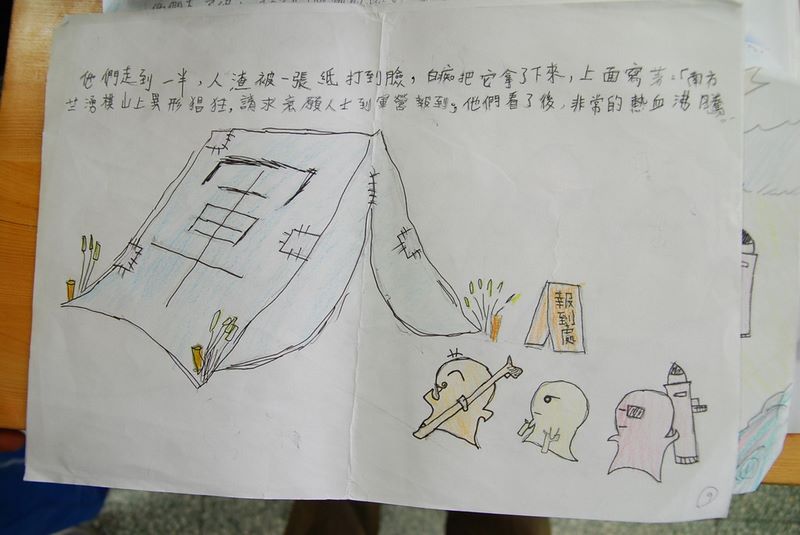 他們走到一半，人渣被一張紙打到臉，白痴把它拿了下來，上面寫著：「南方
山上異形猖狂，請求志願人士到軍營報到」他們看了後，非常的熱血沸騰。
軍
報到處
9